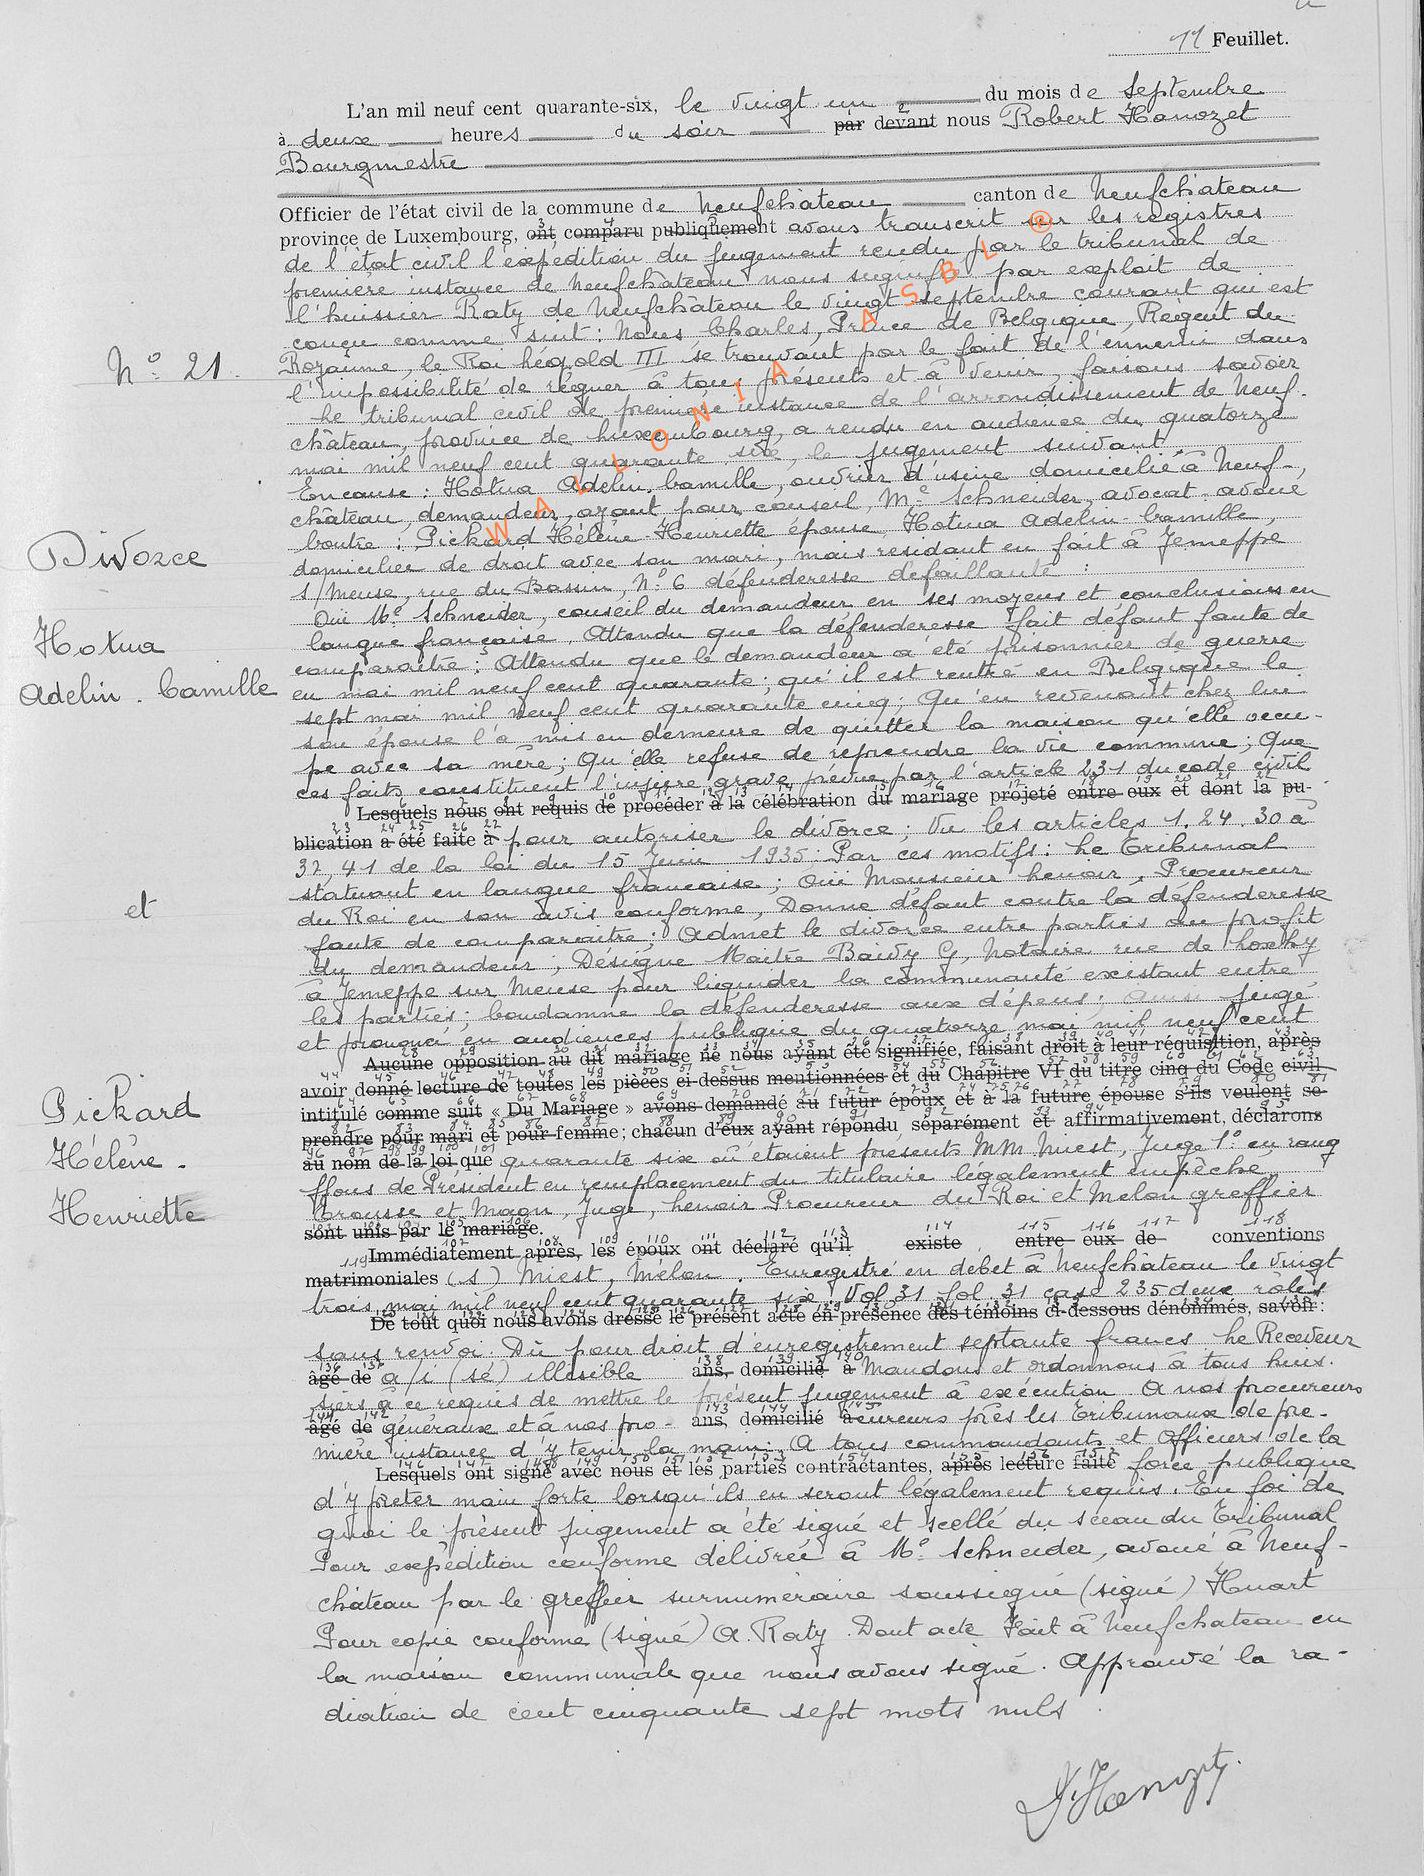 11 Feuillet.
L'an mil neuf cent quarante-six, le vingt un du mois de Septembre
à deux heures du soir par devant nous Robert Hanozet
Bourgmestre
Officier de l'état civil de la commune de Neufchâteau canton de Neufchâteau
province de Luxembourg, ont comparu publiquement avons transcrit sur les registres
de l'état civil l'expédition du jugement rendu par le tribunal de
première instance de Neufchâteau nous signifié par exploit de
l'huissier Raty de Neufchâteau le vingt septembre courant qui est
conçu comme suit : Nous Charles, Prince de Belgique, Régent du
Royaume, le Roi Léopold III se trouvant par le fait de l'ennemi dans
l'impossibilité de régner à tous présents et à venir, faisons savoir
N° 21.
Le tribunal civil de première instance de l'arrondissement de Neuf-
château, province de Luxembourg, a rendu en audience du quatorze
mai mil neuf cent quarante six, le jugement suivant
En cause : Hotua Adelin. Camille, ouvrier d'usine domicilié à Neuf-
château, demandeur, ayant pour conseil, Me Schneider, avocat-avoué
Contre : Pickard Hélène-Henriette épouse Hotua Adelin-Camille,
domiciliée de droit avec son mari, mais résidant en fait à Jemeppe
s/Meuse, rue du Bassin, N° 6 défenderesse défaillante :
Divorce
Hotua
Adelin. Camille
et
Pickard
Hélène.
Henriette
Ouï Me Schneider, conseil du demandeur en ses moyens et conclusions en
langue française. Attendu que la défenderesse fait défaut faute de
comparaître ; Attendu que le demandeur a été prisonnier de guerre
en mai mil neuf cent quarante ; qu'il est rentré en Belgique le
sept mai mil neuf cent quarante cinq ; Qu'en revenant chez lui
son épouse l'a mis en demeure de quitter la maison qu'elle occu-
pe avec sa mère ; Qu'elle refuse de reprendre la vie commune ; Que
ces faits constituent l'injure grave prévue par l'article 231 du code civil
Lesquels nous ont requis de procéder à la célébration du mariage projeté entre eux et dont la pu-
blication a été faite à pour autoriser le divorce ; Vu les articles 1. 24. 30 à
32, 41 de la loi du 15 Juin 1935. Par ces motifs : Le Tribunal
statuant en langue française ; Ouï Monsieur Lenoir, Procureur
du Roi en son avis conforme, Donne défaut contre la défenderesse
faute de comparaître ; Admet le divorce entre parties au profit
du demandeur ; Désigne Maître Baivy G, Notaire rue de Loxhy
à Jemeppe sur Meuse pour liquider la communauté existant entre
les parties ; Condamne la défenderesse aux dépens ; Ainsi jugé
et prononcé en audiences publique du quatorze mai mil neuf cent
Aucune opposition au dit mariage ne nous ayant été signifiée, faisant droit à leur réquisition, après
avoir donné lecture de toutes les pièces ci-dessus mentionnées et du Chapitre VI du titre cinq du Code civil
intitulé comme suit « Du Mariage » avons demandé au futur époux et à la future épouse s'ils veulent se
prendre pour mari et pour femme ; chacun d'eux ayant répondu séparément et affirmativement, déclarons
au nom de la loi que quarante six où étaient présents MM Miest, Juge 1° en rang
ffons de Président en remplacement du titulaire légalement empêché,
Crousse et Magn, Juge, Lenoir Procureur du Roi et Melon greffier
sont unis par le mariage.
Immédiatement après, les époux ont déclaré qu'il existe entre eux de conventions
matrimoniales (s) Miest, Mélon. Enregistré en débet à Neufchâteau le vingt
trois mai mil neuf cent quarante six Vol 31 fol 31 case 235 deux rôles
De tout quoi nous avons dressé le présent acte en présence des témoins ci-dessous dénommés, savoir :
sans renvoi. Dû pour droit d'enregistrement septante francs Le Receveur
âgé de a/i (sé) illisible ans, domicilié à Mandons et ordonnons à tous huis-
siers à ce requis de mettre le présent jugement à exécution. A nos procureurs
âgé de généraux et à nos pro- ans, domicilié à cureurs près les Tribunaux de pre-
mière instance d'y tenir la main. A tous commandants et officiers de la
Lesquels ont signé avec nous et les parties contractantes, après lecture faite force publique
d'y prêter main forte lorsqu'ils en seront légalement requis. En foi de
quoi le présent jugement a été signé et scellé du sceau du Tribunal
Pour expédition conforme délivrée à Me Schneider, avoué à Neuf-
château par le greffier surnuméraire soussigné (signé) Huart
Pour copie conforme (signé) A. Raty. Dont acte Fait à Neufchâteau en
la maison communale que nous avons signé. Approuvé la ra-
diation de cent cinquante sept mots nuls.
R. Hanozet.
WALLONIA ASBL ®